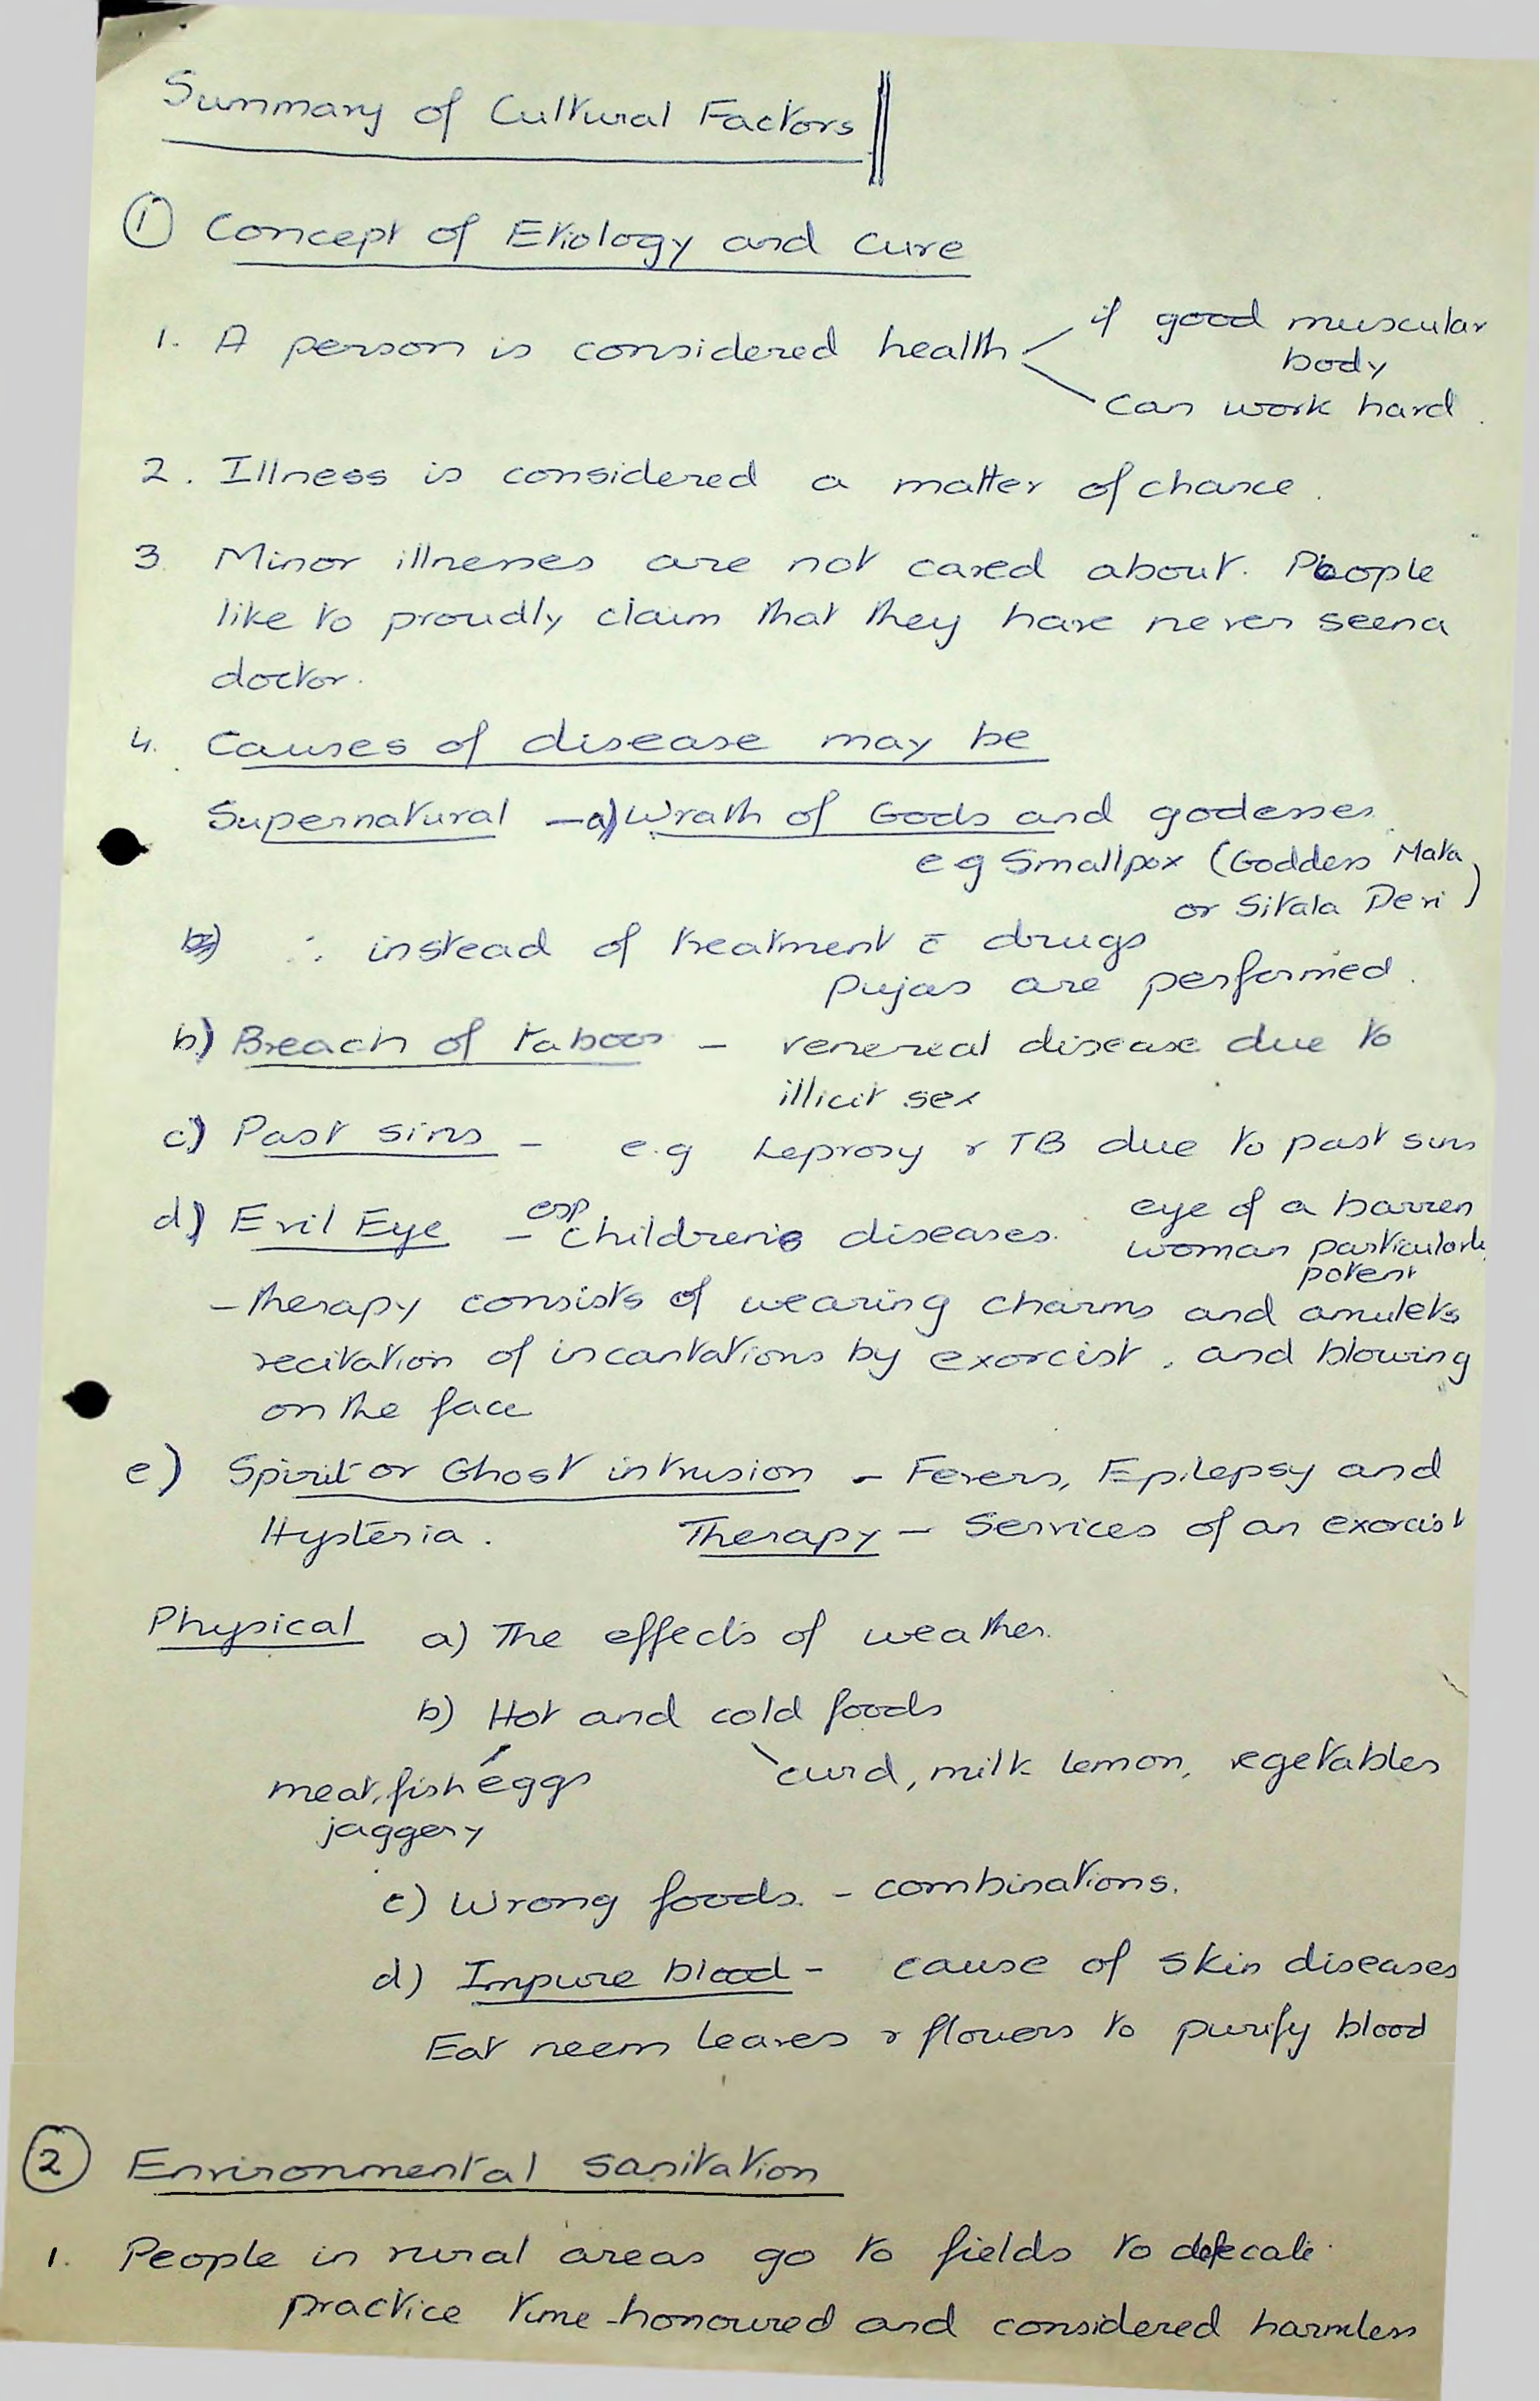 Summary of Cultural Factors
① Concept of Etiology and Cure
1. A person is considered health if good muscular
body
can work hard.
2. Illness is considered a matter of chance.
3. Minor illnesses are not cared about. People
like to proudly claim that they have never seen a
doctor.
4. Causes of disease may be
Supernatural – a) Wrath of Gods and godesses.
eg Smallpox (Goddess Mata
or Sitala Devi)
∴ instead of treatment c̄ drugs
pujas are performed.
b) Breach of taboos – venereal disease due to
illicit sex
c) Past sins – e.g Leprosy & TB due to past sins
d) Evil Eye – esp children's diseases. eye of a barren
woman particularly
potent
– therapy consists of wearing charms and amulets
recitation of incantations by exorcist, and blowing
on the face
e) Spirit or Ghost intrusion – Fevers, Epilepsy and
Hysteria. Therapy – Services of an exorcist
Physical a) The effects of weather.
b) Hot and cold foods
meat, fish eggs curd, milk lemon, vegetables
jaggery
c) Wrong foods. – combinations.
d) Impure blood – cause of skin diseases
Eat neem leaves & flowers to purify blood
② Environmental sanitation
1. People in rural areas go to fields to defecate.
practice time-honoured and considered harmless